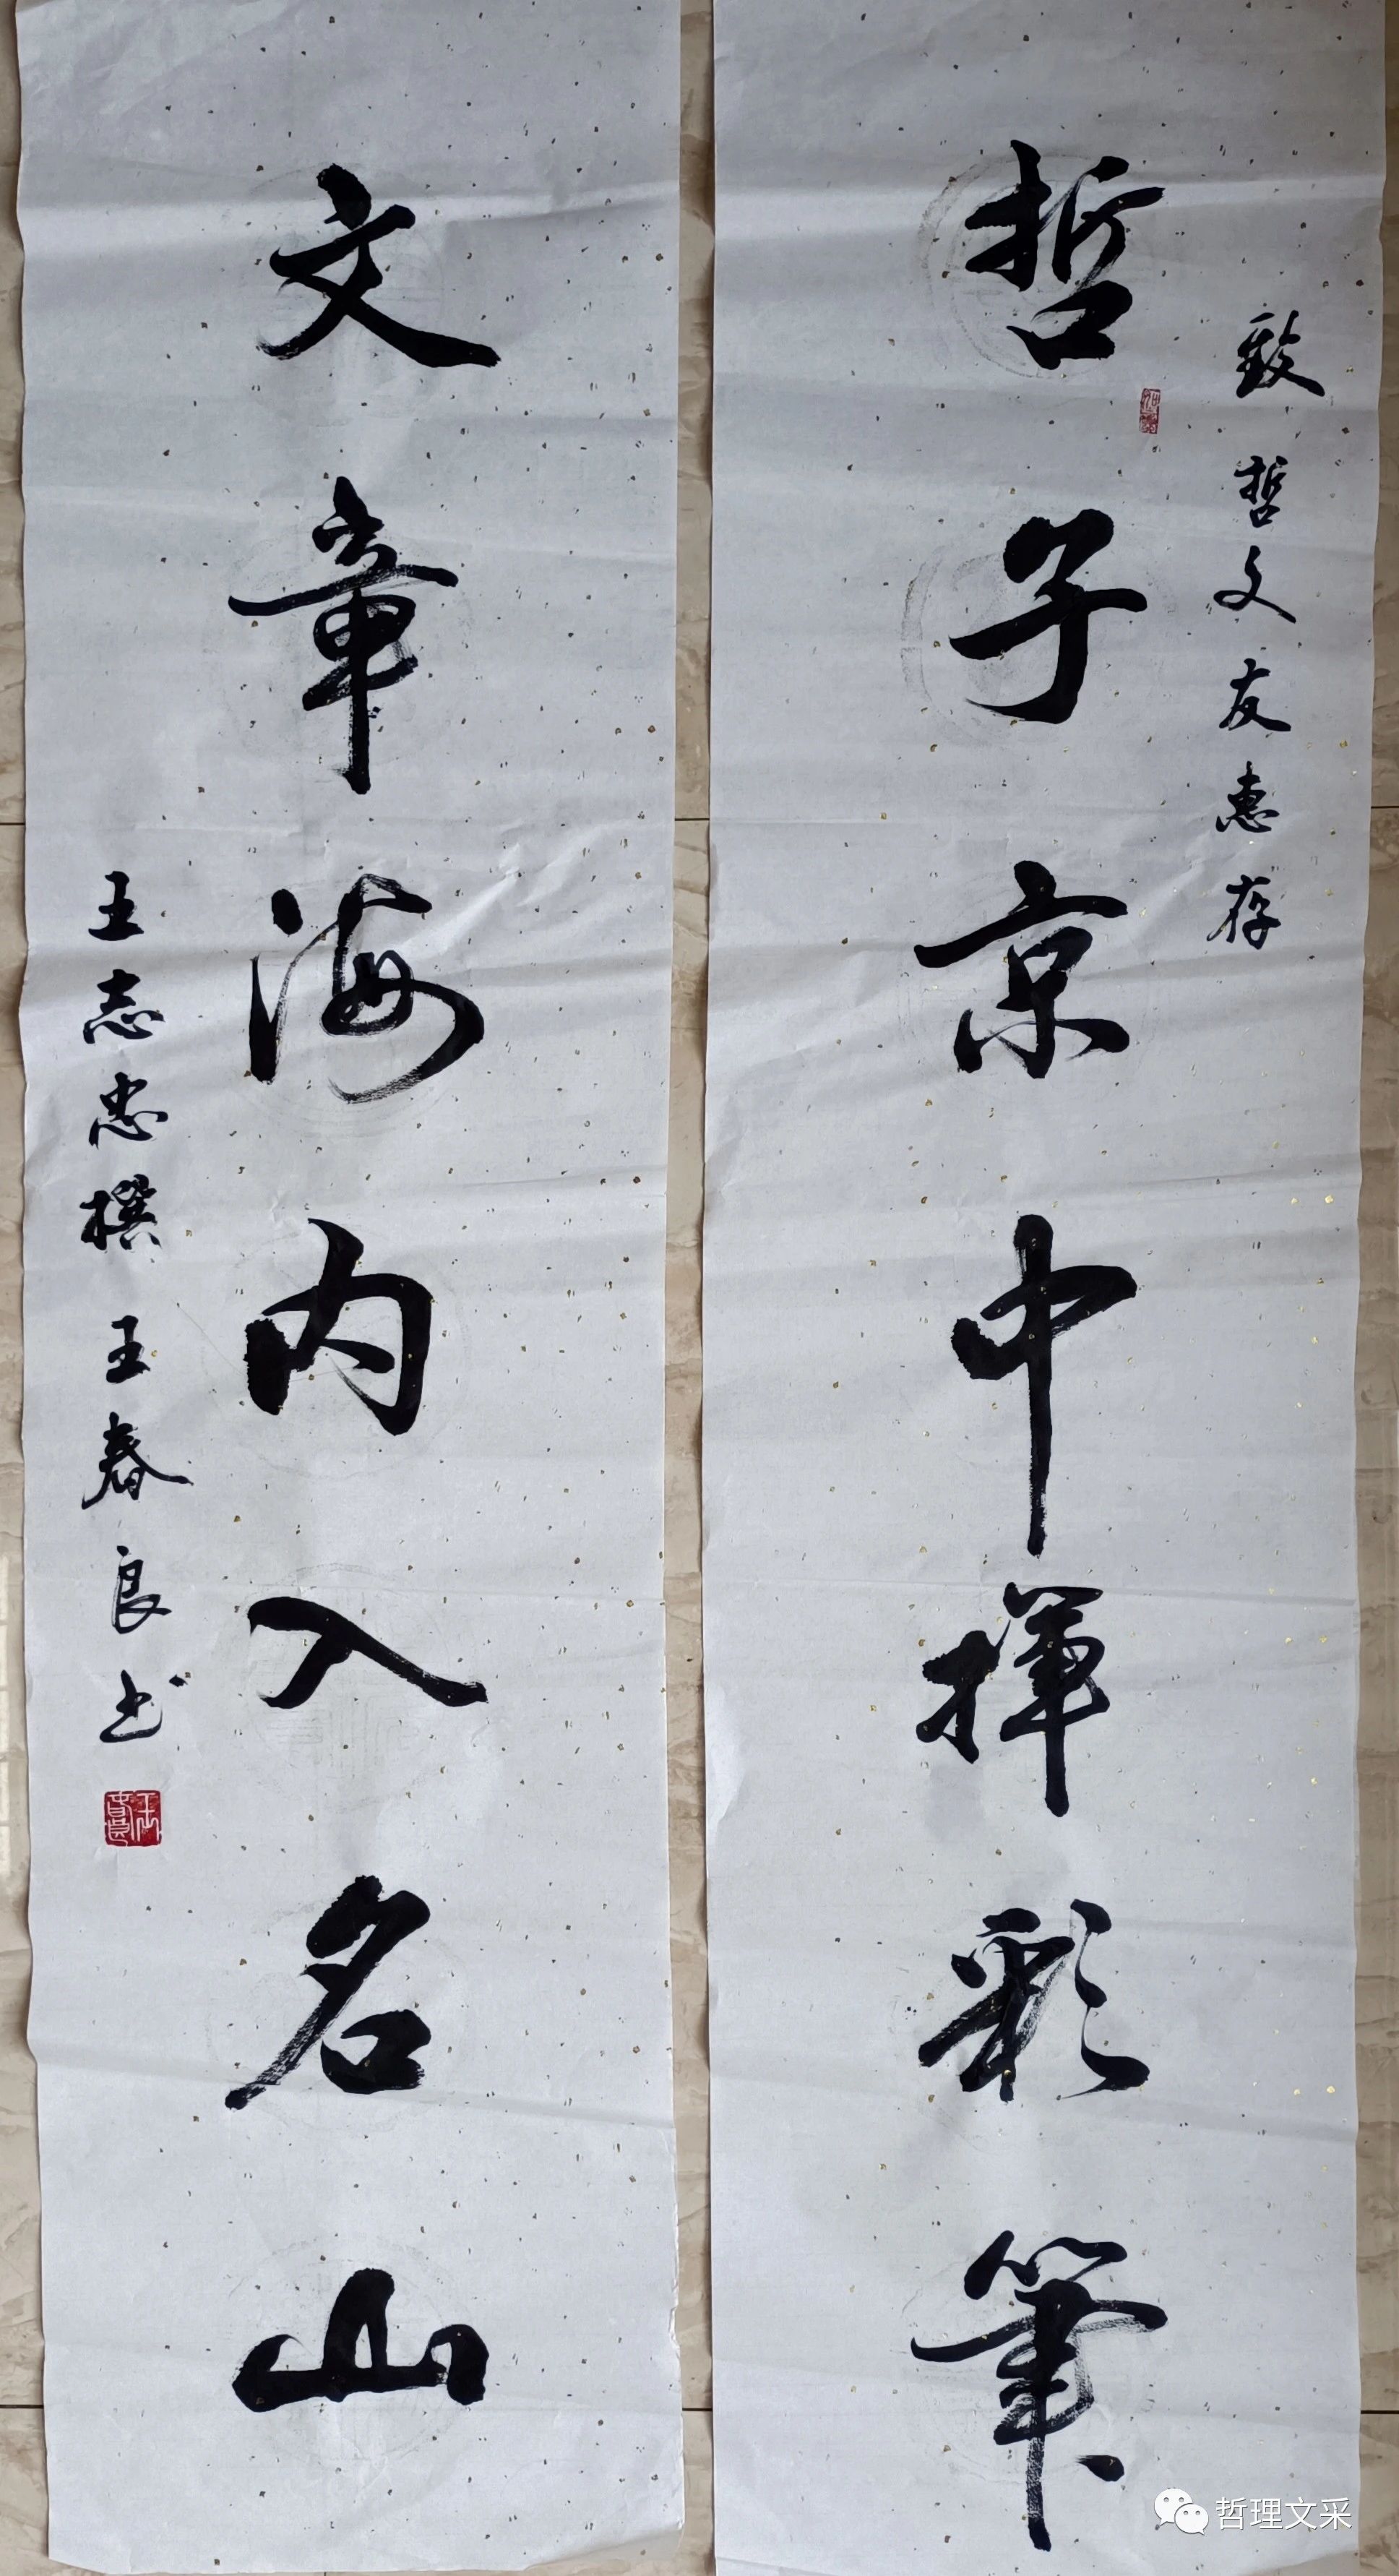 致哲文友惠存
哲子京中揮彩筆
文章海内入名山
王志忠撰王春良书
王春良
哲理文采